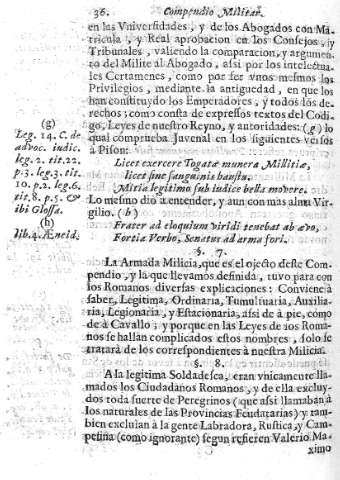 36. Compendio Militar.
en las Vniversidades, y de los Abogados con Ma-
tricula, y Real aprobacion en los Consejos, y
Tribunales, valiendo la comparacion, y argumen-
to del Milite al Abogado, assi por los intelectua-
les Certamenes, como por ser vnos mesmos los
Privilegios, mediante la antiguedad, en que los
han constituydo los Emperadores, y todos los de-
rechos; como consta de expressos textos del Codi-
go, Leyes de nuestro Reyno, y autoridades: (g) lo
qual comprueba Juvenal en los siguientes versos
à Pison:
(g)
Leg. 14. C. de
advoc. iudic.
leg. 2. tit. 22.
p. 3. leg. 3. tit.
10. p. 2. leg. 6.
tit. 8. p. 5. &
ibi Glossa.
(h)
lib. 4. Æneid.
Licet exercere Togatæ munera Militiæ,
licet sine sanguinis haustu,
Mitia legitimo sub iudice bella movere.
Lo mesmo diò à entender, y aun con mas alma Vir-
gilio. (h)
Frater ad eloquium viridi tenebat ab ævo,
Fortia Verbo, Senatus ad arma fori.
§. 7.
La Armada Milicia, que es el objecto deste Com-
pendio, y la que llevamos definida, tuvo para con
los Romanos diversas explicaciones: Conviene à
saber, Legitima, Ordinaria, Tumultuaria, Auxilia-
ria, Legionaria, y Estacionaria, assi de à pie, como
de à Cavallo; y porque en las Leyes de los Roma-
nos se hallan complicados estos nombres, solo se
tratarà de los correspondientes à nuestra Milicia.
§. 8.
A la legitima Soldadesca, eran vnicamente lla-
mados los Ciudadanos Romanos, y de ella exclu-
dos toda suerte de Peregrinos (que assi llamaban à
los naturales de las Provincias Feudatarias) y tam-
bien excluian à la gente Labradora, Rustica, y Cam-
pesina (como ignorante) segun refieren Valerio Ma-
ximo